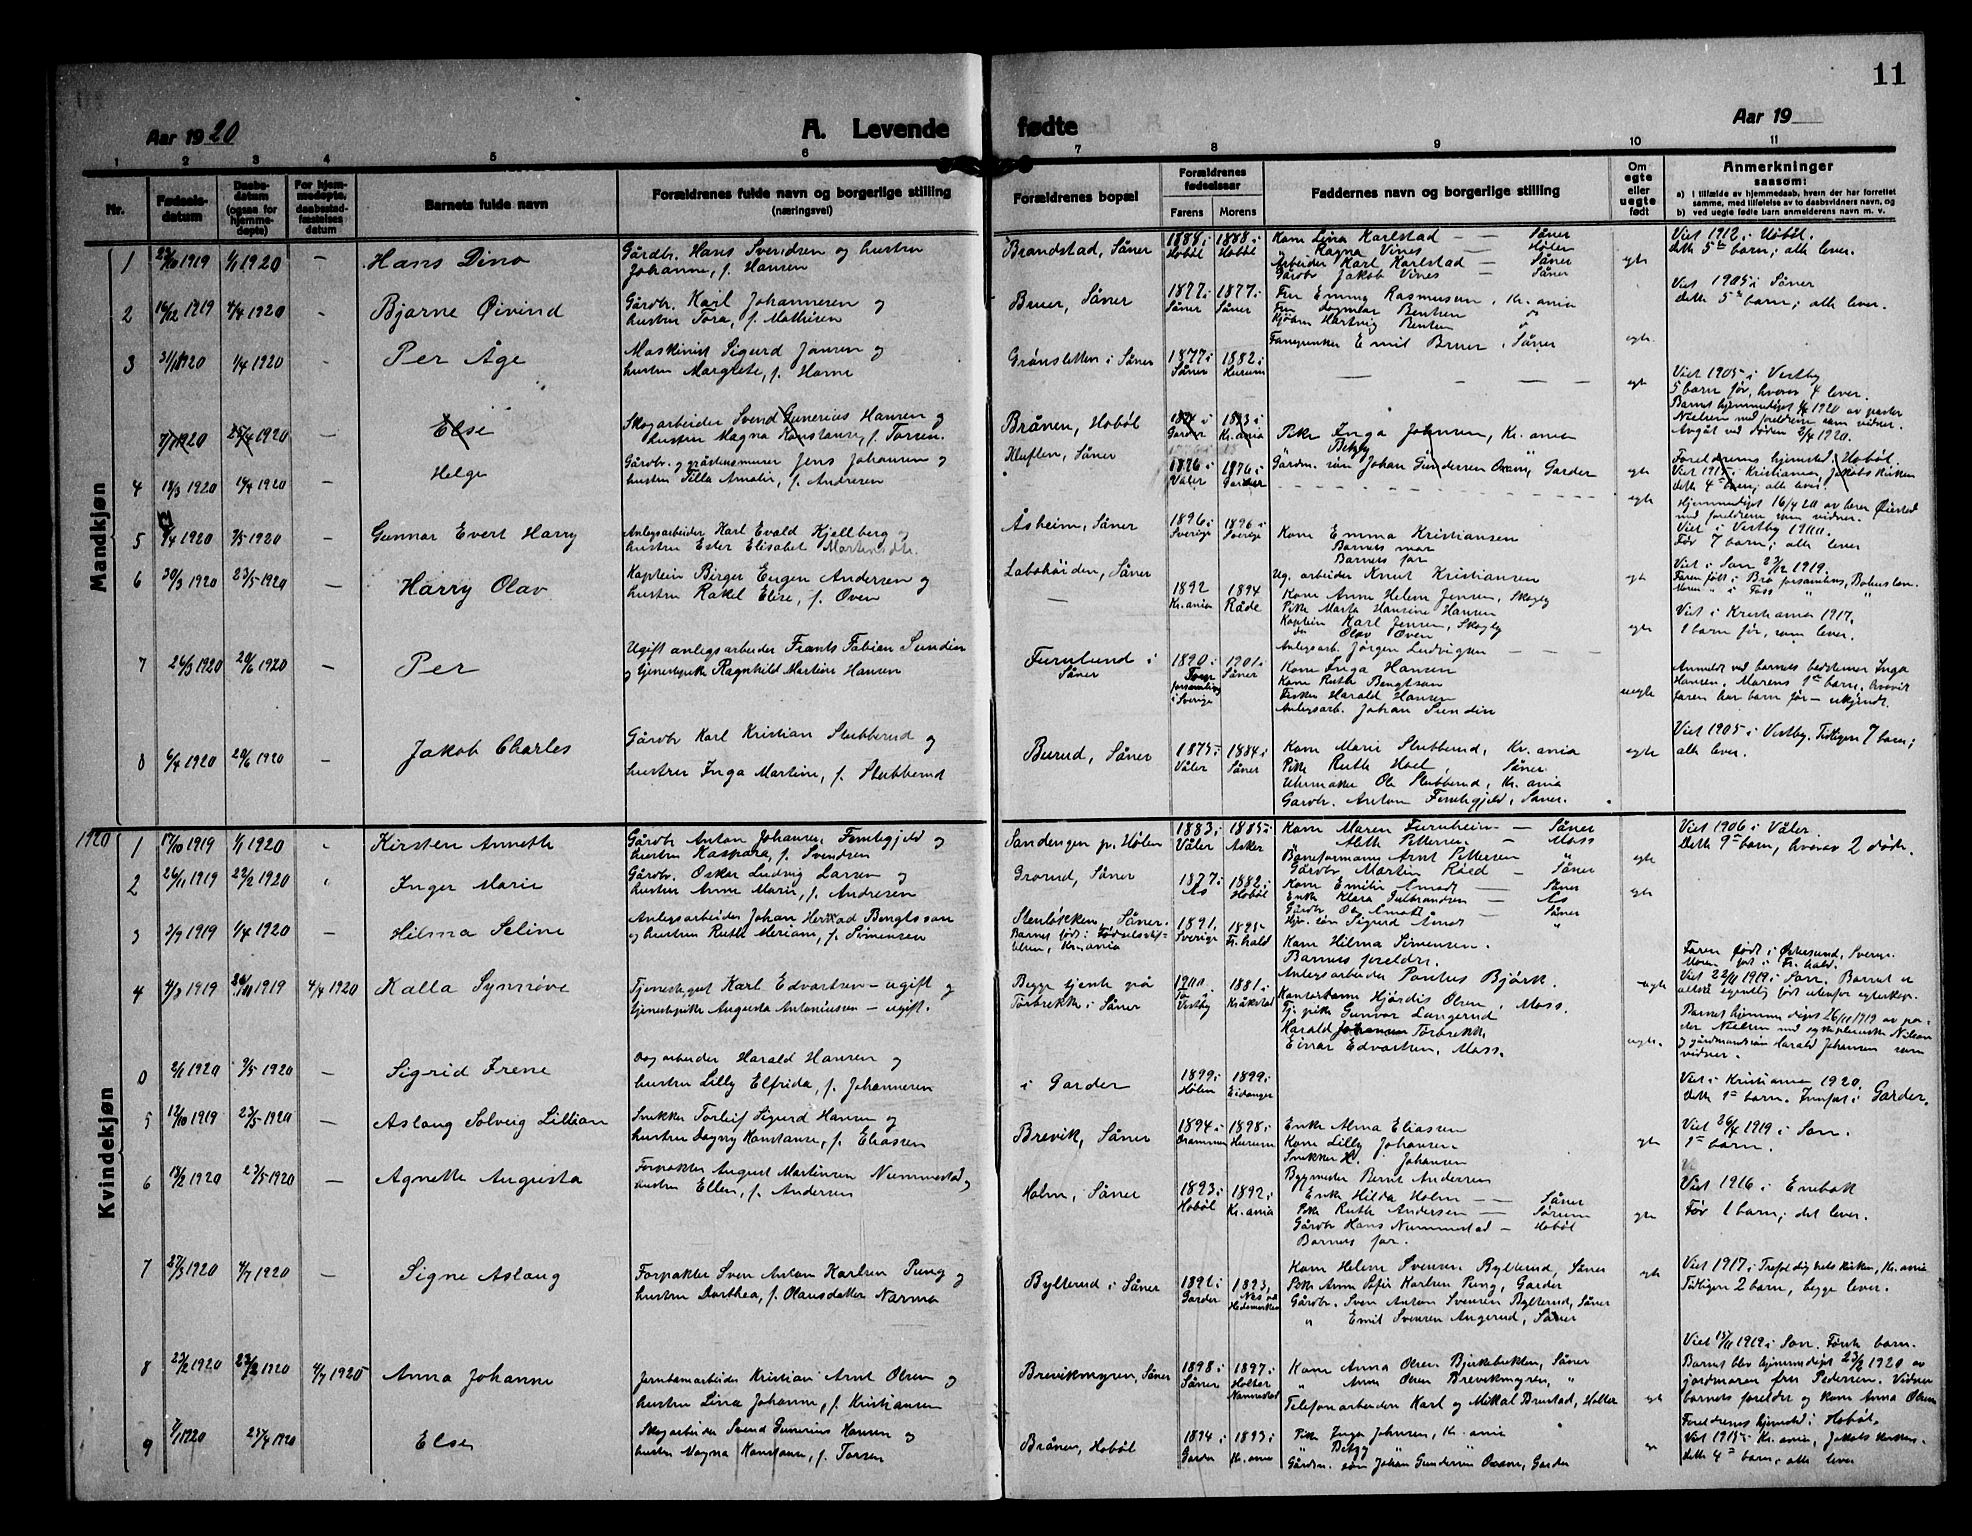 11
Aar 1920
A. Levende fødte
Aar 19
1 2 3 4 5 6 7 8 9 10 11
Nr.
Fødselsdatum
Daabsdatum (ogsaa for hjemmedøpte)
For hjemmedøpte, daabsstadfæstelsesdatum
Barnets fulde navn
Forældrenes fulde navn og borgerlige stilling (næringsvei)
Forældrenes bopæl
Forældrenes fødselsaar
Farens
Morens
Faddernes navn og borgerlige stilling
Om egte eller uegte født
Anmerkninger
saasom:
a) i tilfælde av hjemmedaab, hvem der har forrettet samme, med tilføielse av to daabsvidners navn, og
b) ved uegte fødte barn anmelderens navn m. v.
Mandkjøn
1 1/1 1920 – Hans Dino
Gårdbr. Hans Svendsen og hustru
Johanne, f. Hansen
Brandstad, Såner
1888 i Hobøl 1888 i Hobøl
Kone Lina Karlstad — Såner
Ragna Vines — Hølen
Arbeider Karl Karlstad — Såner
Gårdbr. Jakob Vines — Såner
egte
Viet 1912 i Hobøl.
dette 5te barn; alle lever.
2 16/12 1919 4/4 1920 – Bjarne Øivind
Gårdbr. Karl Johannesen og
hustru Tora, f. Mathisen
Bruer, Såner
1877 i Såner 1877 i Såner
Fru Emma Rasmussen, Kr.ania
Fru Dagmar Bentsen "
Kjøbm. Hartvig Bentsen "
Emil Bruer, Såner
egte
Viet 1905 i Såner
dette 5te barn; alle lever.
3 31/1 1920 1/4 1920 – Per Åge
Maskinist Sigurd Jansen og
hustru Margrete, f. Horne
Grønsletten i Såner
1877 i Såner 1882 i Hurum
egte
Viet 1905 i Vestby
5 barn før, hvorav 4 lever.
Barnet hjemmedøpt 1920 av pastor
Nielsen med foreldrene som vidner.
Avgåt ved døden 2/4 1920.
7/1 1920 25/4 1920 Else
Skogarbeider Svend Gunerius Hansen og
hustru Magna Konstanse, f. Torsen.
Brånen, Hobøl
1894 i Garder 1893 i Kr.ania
Pike Inga Johnsen, Kr.ania
Bitzy
Gårdm. søn Johan Gundersen Oxum, Garder
egte
Foreldrenes hjemsted i Hobøl.
Viet 1915 i Kristiania Jakobs kirken
dette 4de barn; alle lever.
4 18/3 1920 14/4 1920 Helge
Gårdbr. og gråstensmurer Jens Johansen og
hustru Tilla Amalie, f. Andresen
Kluften, Såner
1876 i Våler 1876 i Garder
egte
Hjemmedøpt 16/4 20 av lærer Øiestad
med foreldrene som vidner.
Viet i Vestby 1900
Før 7 barn; alle lever
5 /4 1920 2/5 1920 – Gunnar Evert Harry
Anlegsarbeider Karl Evald Kjellberg og
hustru Ester Elisabet Martinsdtr.
Åsheim, Såner
1896 i Sverige 1896 i Sverige
Kone Emma Kristiansen
Barnets mor
Barnets far
Ug. arbeider Knut Kristiansen
egte
Viet i Son 27/12 1919.
Faren født i Bro forsamling, Bohuslen.
Moren " i Foss " "
6 30/3 1920 23/5 1920 – Harry Olav
Kaptein Birger Eugen Andersen og
hustru Rakel Elise, f. Oven
Labohøiden, Såner
1892 Kr.ania 1894 Råde
Kone Anne Helene Jensen, Skogly
Pike Marta Hansine Hansen
Kaptein Karl Jensen, Skogly
do Olav Oven
egte
Viet i Kristiania 1917.
1 barn før, som lever.
7 26/3 1920 20/6 1920 – Per
Ugift anlegsarbeider Frants Fabian Sundin
og tjenestepike Ragnhild Martine Hansen
Furulund i Såner
1890 i forsamling i Sverige 1901 i Såner
Anlegsarb. Jørgen Ludvigsen
Kone Inga Hansen
Kone Ruth Bengtson
Fisker Harald Hansen
Anlegsarb. Johan Sundin
uegte
Anmeldt ved barnets bedstemor Inga
Hansen. Morens 1ste barn, hvorvidt
faren har barn før – ukjendt.
8 6/4 1920 20/6 1920 – Jakob Charles
Gårdbr. Karl Kristian Slubberud og
hustru Inga Martine, f. Slubberud
Burud, Såner
1875 i Våler 1884 i Såner
Kone Marie Slubberud, Kr.ania
Pike Ruth Hoel, Såner.
Uhrmaker Ole Slubberud, Kr.ania
Gårdbr. Anton Femtegjeld, Såner.
egte
Viet 1905 i Vestby. Tidligere 7 barn;
alle lever.
1920
Kvindekjøn
1 17/10 1919 1/1 1920 Kirsten Annette
Gårdbr. Anton Johansen Femtegjeld og
hustru Kaspara, f. Svendsen
Sandengen pr. Hølen
1883 i Våler 1885 i Asker
Kone Maren Furuheim — Såner
" Aleth Pettersen — Moss
Baneformann Arnt Pettersen "
Gårdbr. Martin Røed — Såner
egte
Viet 1906 i Våler
Dette 9de barn, hvorav 2 døde.
2 26/11 1919 22/2 1920 Inger Marie
Gårdbr. Oskar Ludvig Larsen og
hustru Anne Marie, f. Andresen
Grorud, Såner
1877 i Ås 1882 i Hobøl
Kone Emilie — Såner
Enke Klara Gulbrandsen — Ås
Gårdbr. Ole — Såner
søn Sigurd "
egte
3 3/9 1919 1/4 1920 – Hilma Seline
Anlegsarbeider Johan Bengtsson
og hustru Ruth Meriam, f. Simensen
Stenløkken, Såner.
Barnet født i Fødselsstiftelsen, Kr.ania
1891 i Sverige 1895 Fr.hald
Kone Hilma Simensen.
Barnets foreldre.
Anlegsarbeider Pontus Bjørk.
egte
Faren født i , Sverige.
Moren født i Fr.hald.
Viet 22/11 1919 i Son. Barnet er
altså egentlig født utenfor egteskap.
4 4/3 1919 26/11 1919 4/4 1920 Kalla Synnøve
Tjenestegut Karl Edvartsen – ugift og
tjenestepike Augusta Antoniussen – ugift.
Begge tjente på
Torbrekke i Såner
1900 i Vestby 1881 i Kråkstad
Kontordame Hjørdis Olsen, Moss.
Tj. pike Gunvor Langerud
Harald Johansen Torbrekke
Einar Edvartsen, Moss.
uegte.
Barnet hjemmedøpt 26/11 1919 av pastor Nielsen med sykepleierske Nilsen
og gårdmandssøn Harald Johansen som
vidner.
0 2/1 1920 9/5 1920 – Sigrid Irene
arbeider Harald Hansen og
hustru Lilly Elfrida, f. Johannesen
i Garder
1899 i Hølen 1899 i Eidanger
Viet i Kristiania 1920.
Dette 1ste barn. Innført i Garder.
5 12/10 1919 23/5 1920 – Aslaug Solveig Lillian
Snekker Torleif Sigurd Hansen og
hustru Dagny Konstanse, f. Eliassen
Brevik, Såner
1894 i Drammen 1898 i Hurum
Enke Alma Eliassen
Kone Lilly Johansen
Snekker H. Johansen
Byggmester Bernt Andersen
egte
Viet 26/4 1919 i Son.
1ste barn.
6 18/2 1920 23/5 1920 – Agnethe Augusta
Forpakter August Martinsen Nummestad og
hustru Ellen, f. Andersen
Holm, Såner
1893 i Hobøl 1892 i Kr.ania
Enke Hilda Holm — Såner
Pike Ruth Andersen — Sørum
Gårdbr. Hans Nummestad – Hobøl
Barnets far.
egte
Viet 1916 i Enebak
Før 1 barn; det lever.
7 27/3 1920 4/7 1920 – Signe Aslaug
Forpakter Sven Anton Karlsen Pung og
hustru Dorthea, f. Olausdatter Narmo
Bylterud i Såner
1892 i Garder 1893, Nes på Hedemarken
Kone Helene Svensen Bylterud, Såner
Pike Anne Sofie Karlsen Pung, Garder
Gårdbr. Sven Anton Svensen Bylterud, Såner
" Emil Svensen Angerud, Såner
egte
Viet 1917 i Trefoldighets kirken, Kr.ania
Tidligere 2 barn, begge lever.
8 23/2 1920 23/2 1920 4/7 1920 Anna Johanne
Jernbanearbeider Kristian Arnt Olsen og
hustru Lina Johanne, f. Kristiansen
Brevikmyren, Såner
1898 i Såner 1897 i Holter Nannestad
Kone Anna Olsen Bjerkebekken, Såner
" Anna Olsen Brevikmyren, "
Telefonarbeiderne Karl og Mikal Brustad, Holter
egte
Viet 15/11 1919 i Son. Første barn.
Barnet blev hjemmedøpt 23/2 1920 av
jordmoren fru Pedersen. Vidner
barnets foreldre og kone Anna Olsen
9 7/1 1920 25/4 1920 Else
Skogarbeider Svend Gunerius Hansen og
hustru Magna Konstanse, f. Torsen
Brånen, Hobøl
1894 i Garder 1893 i Kr.ania
Pike Inga Johnsen, Kr.ania
" Bitzy "
Gårdm. søn Johan Gundersen Oxum, Garder
Foreldrenes hjemsted i Hobøl.
Viet 1915 i Kr.ania, Jakobs kirken.
dette 4de barn; alle lever